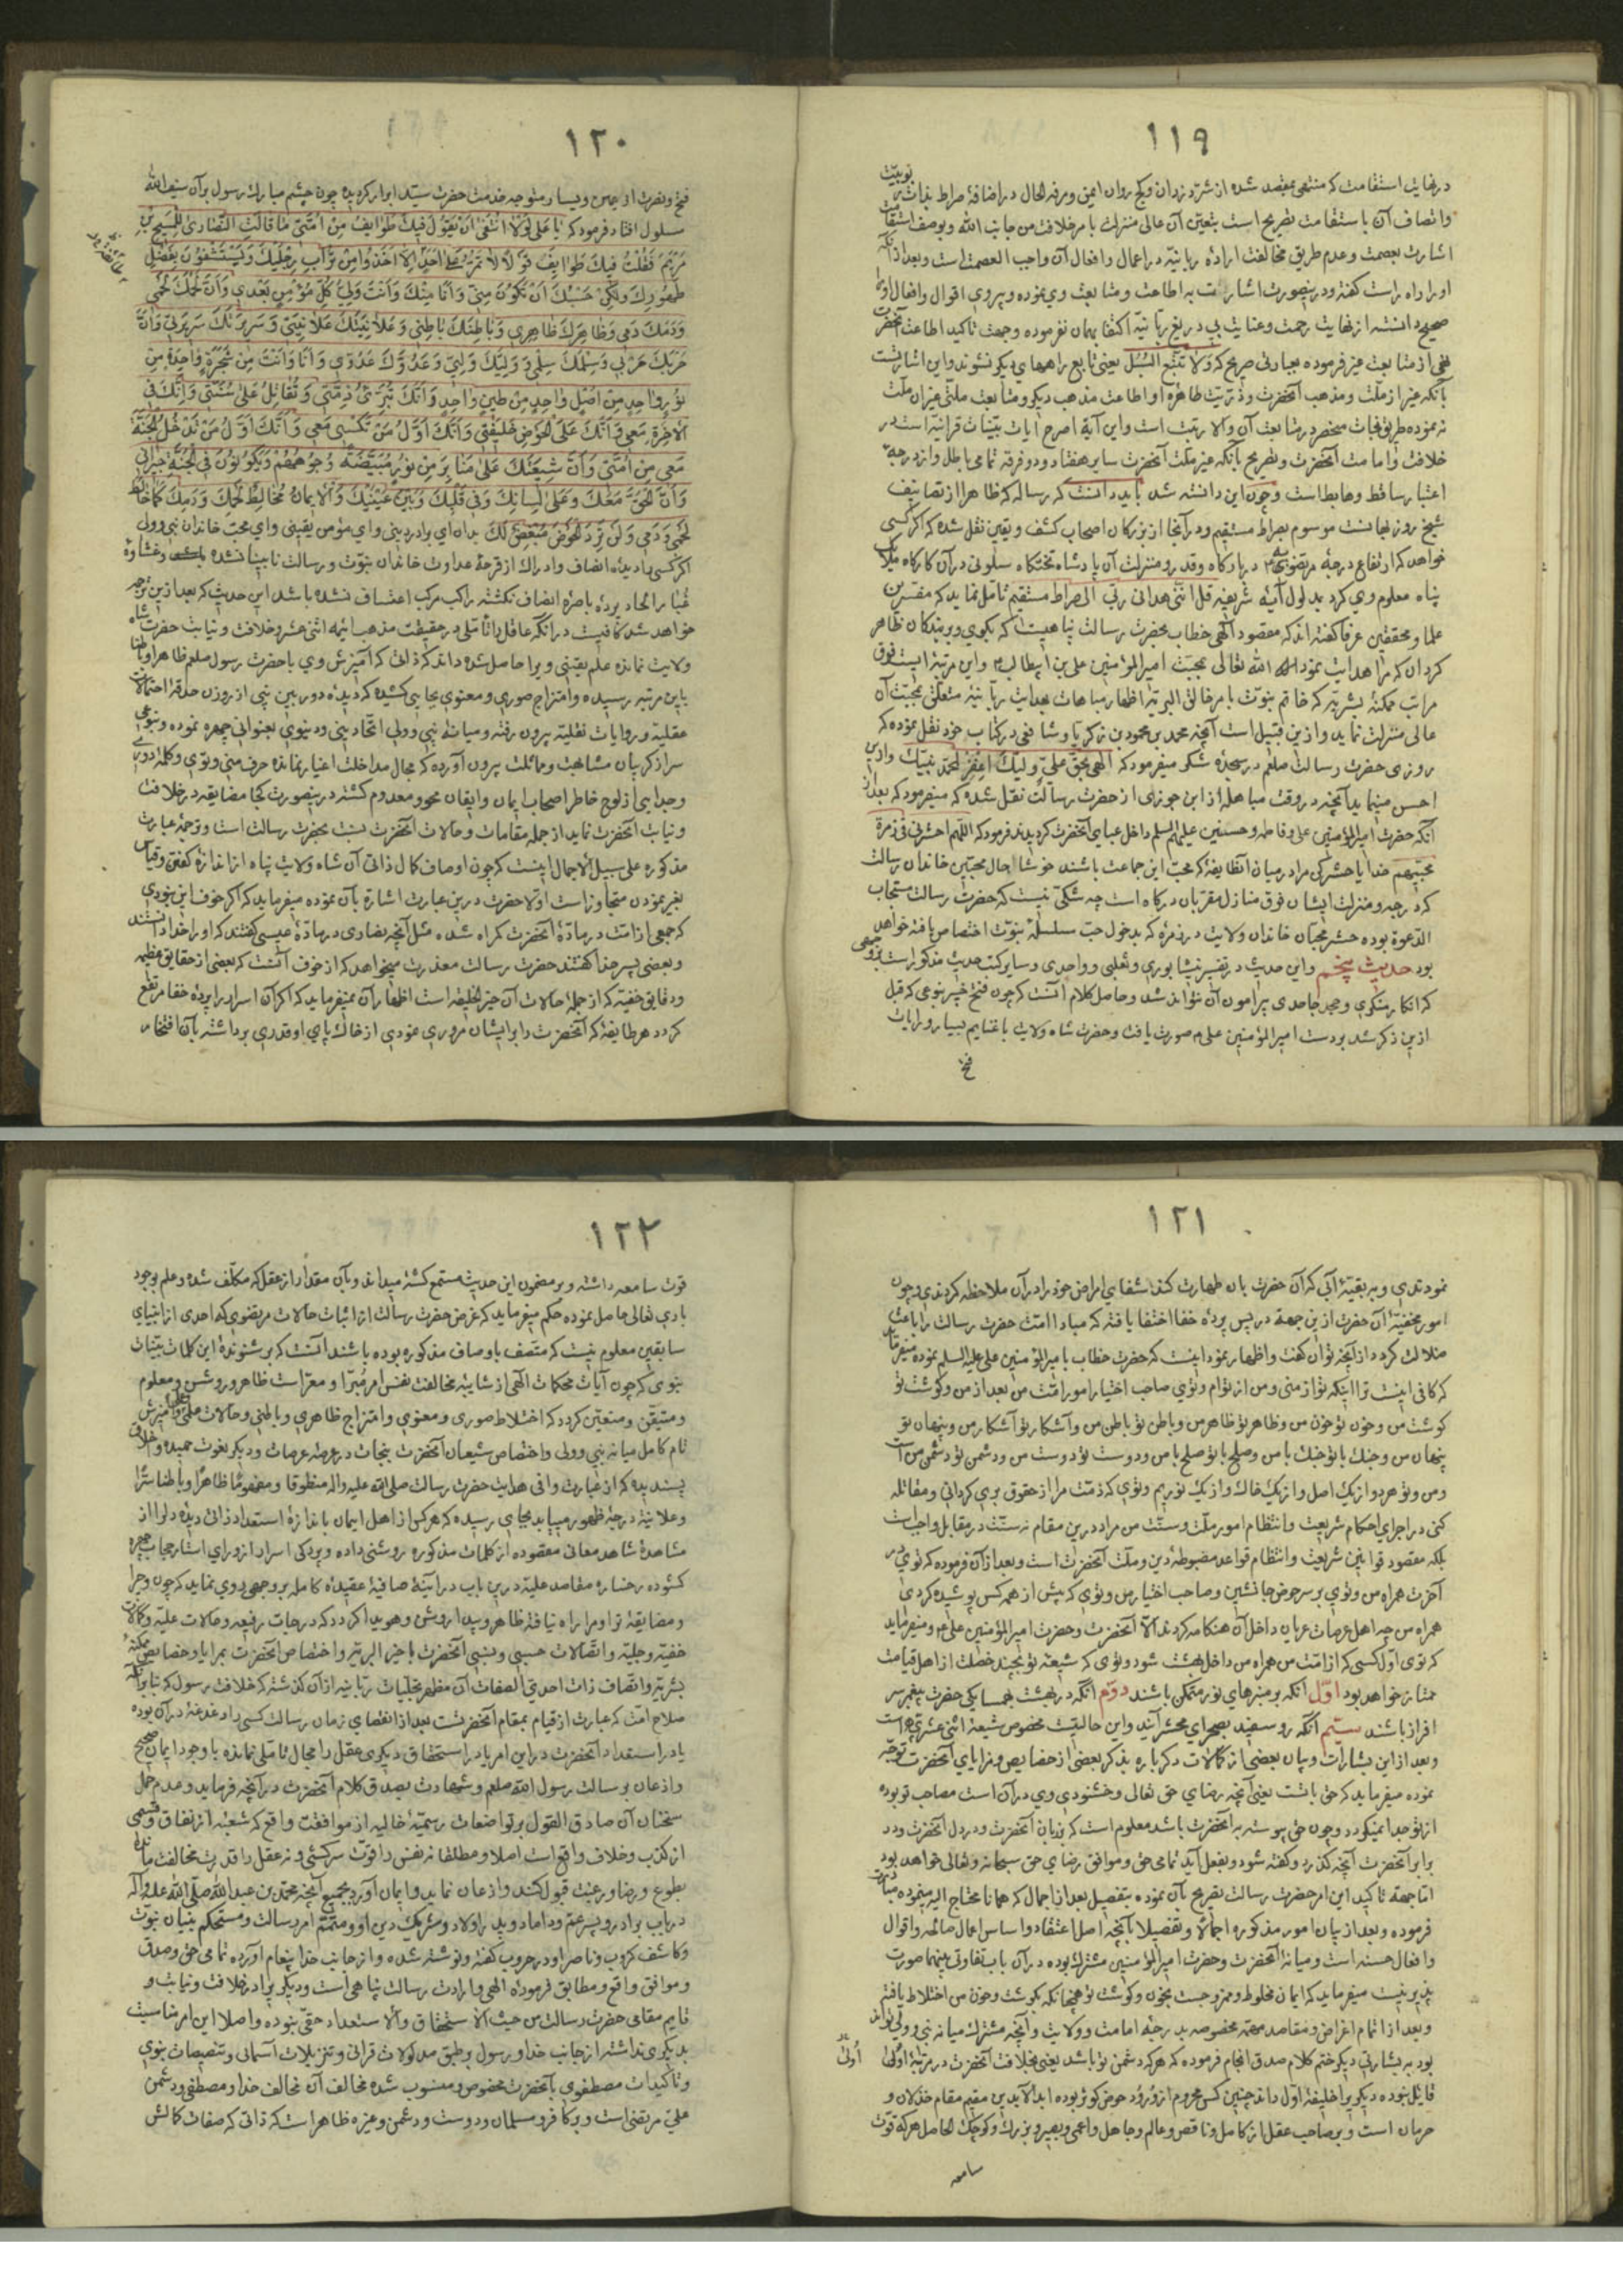 ١١٩
در نهایت استقامت که منتهی بمقصد شده از شر دزدان و کج روان ایمن و مرفه الحال در اضافهٔ صراط بذات
واتصاف آن باستقامت تصریح است بتعین آن عالی منزلت بامر خلافت من جانب الله و بوصف استقامت
اشارت بعصمت و عدم طریق مخالفت ارادهٔ ربانیه در اعمال و افعال آن واجب العصمت است و بعد از آنکه
او را راه راست کفته و درینصورت اشارت به اطاعت و متابعت وی نموده و پیروی اقوال و افعال او را
صحیح دانسته از نهایت رحمت و عنایت بی دریغ ربانیه اکتفا بهمان نفرموده و جهت تاکید اطاعت آنحضرت
نهی از متابعت غیر فرموده بعبارتی صریح که ولا تتبع السبل یعنی تابع راههای دیکر نشوند و این اشارتست
بآنکه غیر از ملت و مذهب آنحضرت و ذریت طاهره او اطاعت مذهب دیکر و متابعت ملتی غیر آن ملت
نه نموده طریق نجات منحصر در متابعت آن والا رتبت است و این آیه اصرح آیات بینات قرانیه است در
خلافت و امامت آنحضرت و تصریح بآنکه غیر ملت آنحضرت سایر هفتاد و دو فرقه تمامی باطل و از درجهٔ
اعتبار ساقط و هابط است و چون این دانسته شد باید دانست که رساله که ظاهرا از تصانیف
شیخ روزبهانست موسوم بصراط مستقیم و در آنجا از بزرکان اصحاب کشف و یقین نقل شده که اکر کسی
خواهد که ارتفاع درجهٔ مرتضوی در بارکاه و قدر و منزلت آن پادشاه تختکاه سلونی در آن کارکاه
پناه معلوم وی کردد بمدلول آیهٔ شریفه قل اننی هدانی ربی الی صراط مستقیم تأمل نماید که مفسرین
علما و محققین عرفا کفته اند که مقصود آلهی خطاب بحضرت رسالت پناهیست که بکوی و بر بندکان ظاهر
کردان که مرا هدایت نمود الله تعالی بمحبت امیر المؤمنین علی بن ابیطالب و این مرتبه ایست فوق
مراتب ممکنهٔ بشریه که خاتم نبوت بامر خالق البریه اظهار مباهات بهدایت ربانیهٔ متعلق بمحبت آن
عالی منزلت نماید و ازین قبیل است آنچه محمد بن محمود بن زکریا و شافعی در کتاب خود نقل نموده که
روزی حضرت رسالت صلعم در سجدهٔ شکر میفرمود که الهی بحق علی ولیک اغفر لمحمد نبیک و ازین
احسن مینماید آنچه در وقت مباهله از ابن جوزی از حضرت رسالت نقل شده که میفرمود که بعد از
آنکه حضرت امیر المؤمنین علی و فاطمه و حسنین علیهم السلم داخل عبای آنحضرت کردیدند فرمود که اللهم احشرنی فی زمرة
محبیهم خدایا حشر کن مرا در میان آنطایفه که محب این جماعت باشند خوشا حال محبین خاندان رسالت
که درجه و منزلت ایشان فوق منازل مقربان درکاه است چه شکی نیست که حضرت رسالت مستجاب
الدعوة بوده حشر محبان خاندان ولایت در زمرهٔ که بدخول حب سلسلهٔ نبوت اختصاص یافته خواهد
بود حدیث پنجم و این حدیث در تفسیر نیشابوری و ثعلبی و واحدی و سایر کتب حدیث مذکور است
که انکار منکری و جحد جاحدی پیرامون آن نتواند شد و حاصل کلام آنست که چون فتح خیبر بنوعی که قبل
ازین ذکر شد بر دست امیر المؤمنین علی صورت یافت و حضرت شاه ولایت با غنایم بسیار و رایات
فتح
١٢٠
فتح و نصرت از یمین و یسار متوجه خدمت حضرت سید ابرار کردیده چون چشم مبارک رسول بر آن سیف الله
مسلول افتاد فرمود که یا علی لولا انفی ان تقول فیک طوایف من امتی ما قالت النصاری للمسیح بن
مریم لقلت فیک طوایف قولا لا تمر علی احد الا اخذوا من تراب رجلیک ویستشفون بفضل
طهورک ولکن حسبک ان تکون منی وانا منک وانت ولی کل مؤمن بعدی وان لحمک لحمی
ودمک دمی وظاهرک ظاهری وباطنک باطنی وعلانیتک علانیتی وسریرتک سریرتی وان
حربک حربی وسلمک سلمی وولیک ولیی وعدوک عدوی وانا وانت من شجرة واحدة من
نور واحد من اصل واحد من طین واحد وانک تبرئ ذمتی وتقاتل علی سنتی وانک فی
الاخرة معی وانک علی الحوض خلیفتی وانک اول من تکسی معی وانک اول من تدخل الجنة
معی من امتی وان شیعتک علی منابر من نور مبیضة وجوههم ویکونون فی الجنة جیرانی
وان الحق معک وعلی لسانک وفی قلبک وبین عینیک والایمان مخالط لحمک ودمک کما خالط
لحمی ودمی ولن یرد الحوض مبغض لک بدان ای برادر دینی و ای مؤمن یقینی و ای محب خاندان نبی و ولی
اکر کسی را دیدهٔ انصاف و ادراک از قرحهٔ عداوت خاندان نبوت و رسالت نابینا نشده و غشاوهٔ
غبار الحاد پردهٔ باصرهٔ انصاف نکشته راکب مرکب اعتساف نشده باشد این حدیث که بعد ازین ترجمه
خواهد شد کافیست در آنکه عاقل را تأملی در حقیقت مذهب ائمه اثنی عشر و خلافت و نیابت حضرت شاه
ولایت نمانده علم یقینی ویرا حاصل شده داند که ذاتی که آمیزش وی با حضرت رسول صلعم ظاهرا و باطنا
باین مرتبه رسیده و امتزاج صوری و معنوی بجایی کشیده که دیدهٔ دوربین نبی از روزن حدقهٔ احتمالات
عقلیه و روایات نقلیه بیرون رفته و میانهٔ نبی و ولی اتحاد دینی و دنیوی بعنوانی چهره نموده و بنوعی
سر از کریبان مشابهت و مماثلت بیرون آورده که مجال مداخلت اغیار نمانده حرف منی و توئی و کلمهٔ دوی
و جدایی از لوح خاطر اصحاب ایمان و ایقان محو و معدوم کشته درینصورت کجا مضایقه در خلافت
و نیابت آنحضرت نماید از جمله مقامات و حالات آنحضرت نسبت بحضرت رسالت است و ترجمهٔ عبارت
مذکوره علی سبیل الاجمال اینست که چون اوصاف کمال ذاتی آن شاه ولایت پناه از اندازهٔ کفتن و قیاس
بغیر نمودن متجاوز است اولا حضرت درین عبارت اشاره بآن نموده میفرماید که اکر خوف این نبودی
که جمعی از امت در مادهٔ آنحضرت کمراه شده مثل آنچه نصاری در مادهٔ عیسی کفتند که او را خدا دانستند
و بعضی پسر خدا کفتند حضرت رسالت معذرت میخواهد که از خوف آنست که بعضی از حقایق عظیمه
و دقایق خفیه که از جملهٔ حالات آن خیر الخلیقه است اظهار آن نمیفرماید که اکر آن اسرار را پردهٔ خفا مرتفع
کردد هر طایفه که آنحضرت را بر ایشان مروری نمودی از خاک پای او قدری برداشته بآن افتخار
١٢١
نمودندی و به بقیهٔ آبی که آن حضرت بآن طهارت کند شفای امراض خود را در آن ملاحظه کردندی و چون
امور مخفیهٔ آن حضرت ازین جهة در پس پردهٔ خفا اختفا یافته که مبادا امت حضرت رسالت را باعث
ضلالت کردد از آنچه توان کفت و اظهار نمود اینست که حضرت خطاب بامیر المؤمنین علی علیه السلم نموده میفرماید
که کافی اینست ترا اینکه تو از منی و من از تو ام و توی صاحب اختیار امور امت من بعد از من و کوشت تو
کوشت من و خون تو خون من و ظاهر تو ظاهر من و باطن تو باطن من و آشکار تو آشکار من و پنهان تو
پنهان من و جنک با تو جنک با من و صلح با تو صلح با من و دوست تو دوست من و دشمن تو دشمن من است
و من و تو هر دو از یک اصل و از یک خاک و از یک نوریم و توی که ذمت مرا از حقوق بری کردانی و مقاتله
کنی در اجرای احکام شریعت و انتظام امور ملت و سنت من مراد درین مقام نه سنت در مقابل واجبست
بلکه مقصود قوانین شریعت و انتظام قواعد مضبوطهٔ دین و ملت آنحضرت است و بعد از آن فرموده که توی در
آخرت همراه من و توی بر سر حوض جانشین و صاحب اختیار من و توی که پیش از همه کس پوشیده کردی
همراه من چه اهل عرصات عریان داخل آن هنکامه کردند الا آنحضرت و حضرت امیر المؤمنین علی و میفرماید
که توی اول کسی که از امت من همراه من داخل بهشت شود و توی که شیعهٔ تو بچند خصلت از اهل قیامت
ممتاز خواهد بود اول آنکه بر منبرهای نور متمکن باشند دوم آنکه در بهشت بهمسایکی حضرت پیغمبر سر
افراز باشند سیم آنکه رو سفید بصحرای محشر آیند و این حالیست مخصوص شیعهٔ اثنی عشری است
و بعد از این بشارات و بیان بعضی از کمالات دکر باره بذکر بعضی از خصایص و مزایای آنحضرت توجه
نموده میفرماید که حق با تست یعنی آنچه رضای حق تعالی و خشنودی وی در آن است مصاحب تو بوده
از تو جدا نمیکردد و چون حق پیوسته به آنحضرت باشد معلوم است که بزبان آنحضرت و در دل آنحضرت و در
برابر آنحضرت آنچه کذرد و کفته شود و بفعل آید تمامی حق و موافق رضای حق سبحانه و تعالی خواهد بود
اما جهة تاکید این امر حضرت رسالت تصریح بآن نموده بتفصیل بعد از اجمال که همانا محتاج الیه مینموده
فرموده و بعد از بیان امور مذکوره اجمالا و تفصیلا بآنچه اصل اعتقاد و اساس اعمال صالحه و اقوال
و افعال حسنه است و میانهٔ آنحضرت و حضرت امیر المؤمنین مشترک بوده در آن باب تفاوتی بینهما صورت
پذیر نیست میفرماید که ایمان مخلوط و ممزوجست بخون و کوشت تو همچنانکه بکوشت و خون من اختلاط یافته
و بعد از اتمام اغراض و مقاصد مهمه مخصوصه بدرجهٔ امامت و ولایت و آنچه مشترک میانه نبی و ولی تواند
بود به بشارتی دیکر ختم کلام صدق انجام فرموده که هر که دشمن تو باشد یعنی بخلافت آنحضرت در مرتبهٔ اولی
قایل نبوده دیکریرا خلیفهٔ اول داند چنین کس محروم از ورود حوض کوثر بوده ابد الآبدین مقیم مقام خذلان و
حرمان است و بر صاحب عقل از کامل و ناقص و عالم و جاهل و اعمی و بصیر و بزرک و کوچک الحاصل هر که قوت
سامعه
١٢٢
قوت سامعه داشته و بر مضمون این حدیث مستمع کشته میداند و بآن مقدار از عقل که مکلف شده و علم بوجود
باری تعالی حاصل نموده حکم میفرماید که غرض حضرت رسالت از اثبات حالات مرتضوی که احدی از انبیای
سابقین معلوم نیست که متصف باوصاف مذکوره بوده باشند آنست که بر شنوندهٔ این کلمات بینات
نبوی که چون آیات محکمات الهی از شایبهٔ مخالفت نفس امر مبرا و معراست ظاهر و روشن و معلوم
و متیقن و متعین کردد که اختلاط صوری و معنوی و امتزاج ظاهری و باطنی و حالات
تام کامل میانه نبی و ولی و اختصاص شیعیان آنحضرت بنجات در عرصه عرصات و دیکر نعوت حمیده و اخلاق
پسندیده که از عبارت وافی هدایت حضرت رسالت صلی الله علیه واله منطوقا و مفهوما ظاهرا و باطنا سرا
و علانیة درجهٔ ظهور مییابد بجای رسیده که هر کس از اهل ایمان باندازهٔ استعداد ذاتی دیدهٔ دل را از
مشاهدهٔ شاهد معانی مقصوده از کلمات مذکوره روشنی داده و پردکی اسرار از ورای استار حجاب چهره
کشوده رخساره مقاصد علیه درین باب در آینهٔ صافیهٔ عقیدهٔ کامله بر وجهی روی نماید که چون و چرا
و مضایقه تو او مرا راه نیافته ظاهر و پیدا روشن و هویدا کردد که درجات رفیعه و حالات علیه و کمالات
خفیه و جلیه و اتصالات حسبی و نسبی آنحضرت با خیر البریه و اختصاص آنحضرت بمزایا و خصایص ممکنهٔ
بشریه و اتصاف ذات احدی الصفات آن مظهر تجلیات ربانیه از آن کذشته که خلافت رسول که بنابر آنکه
صلاح امت که عبارت از قیام بمقام آنحضرتست بعد از انقضای زمان رسالت کسی را دغدغهٔ در آن بوده
یا در استعداد آنحضرت در این امر یا در استحقاق دیکری عقل را مجال تأملی نمانده با وجود ایمان صحیح
و اذعان برسالت رسول الله صلعم و شهادت بصدق کلام آنحضرت در آنچه فرماید و عدم حمل
سخنان آن صادق القول بر تواضعات رسمیهٔ خالیه از موافقت واقع که شعبه از نفاق و قسمی
از کذب و خلاف واقع است اصلا و مطلقا نه نفس را قوت سرکشی و نه عقل را قدرت مخالفت مانده
بطوع و رضا و رغبت قبول کنند و اذعان نماید و ایمان آورد بجمیع آنچه محمد بن عبدالله صلی الله علیه وآله
در باب برادر و پسر عم و داماد و پدر اولاد و شریک دین او و متمم امر رسالت و مستحکم بنیان نبوت
و کاشف کروب و ناصر او در حروب کفته و نوشته شده و از جانب خدا پیغام آورده تمامی حق و صدق
و موافق واقع و مطابق فرمودهٔ الهی و ارادت رسالت پناهی است و دیکریرا در خلافت و نیابت و
قایم مقامی حضرت رسالت من حیث الاستحقاق و الاستعداد حقی نبوده و اصلا این امر مناسبت
بدیکری نداشته از جانب خدا و رسول بر طبق مدلولات قرانی و تنزیلات آسمانی و تنصیصات نبوی
و تأکیدات مصطفوی بآنحضرت مخصوص و منسوب شده مخالف آن مخالف خدا و مصطفی و دشمن
علی مرتضی است و بر کافر و مسلمان و دوست و دشمن و غیره ظاهر است که ذاتی که صفات کمالش